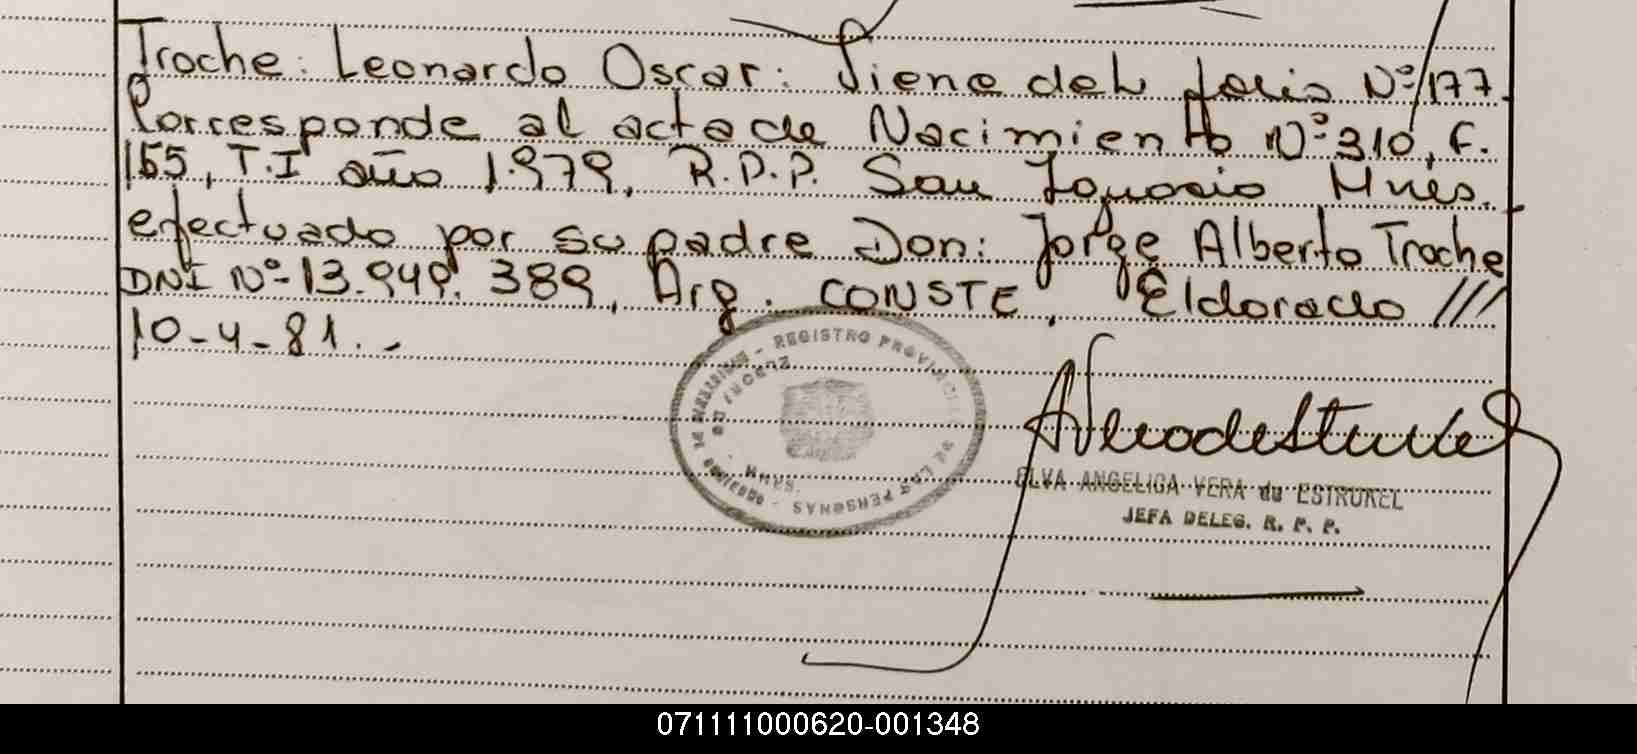 Troche: Leonardo Oscar: Viene del folio Nº 177.
Corresponde al acta de Nacimiento Nº 310, F.
155, T.I año 1.979, R.P.P. San Ignacio Mnes.
efectuado por su padre Don: Jorge Alberto Troche
DNI Nº- 13.949.389, Arg. CONSTE, Eldorado ///
10-4-81.-
REGISTRO PROVINCIAL DE LAS PERSONAS
ELVA ANGELICA VERA de ESTRUKEL
JEFA DELEG. R. P. P.
071111000620-001348